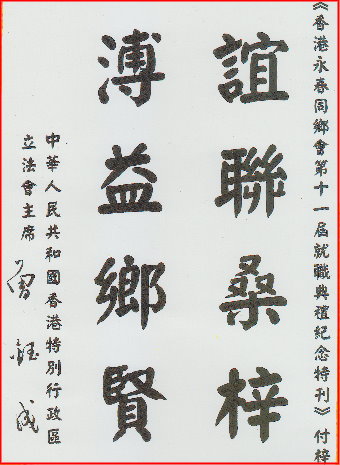 《香港永春同鄉會第十一屆就職典禮紀念特刊》付梓
誼聯桑梓
溥益鄉賢
中華人民共和國香港特別行政區
立法會主席
曾鈺成